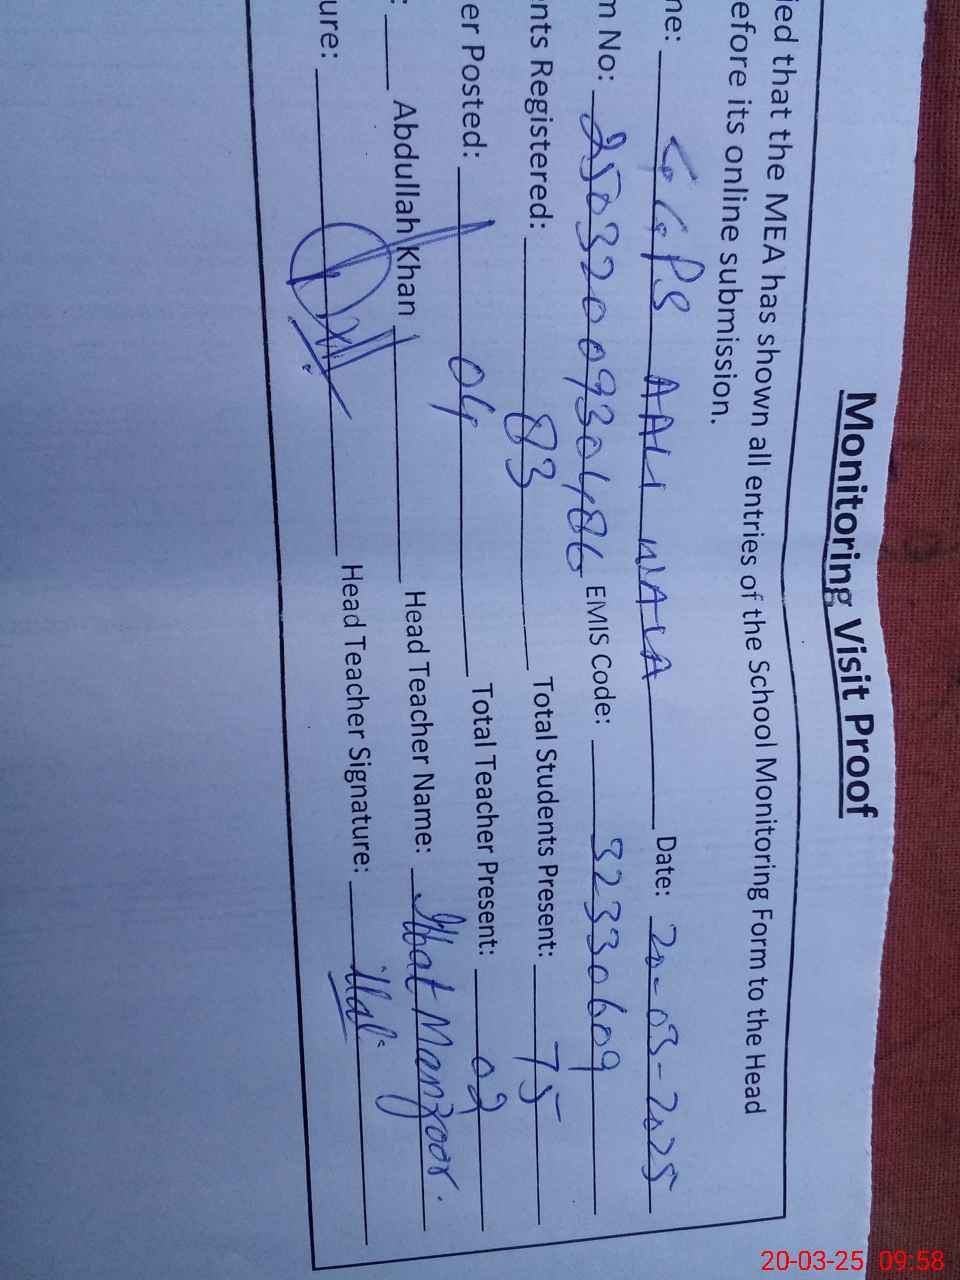 Monitoring Visit Proof
ied that the MEA has shown all entries of the School Monitoring Form to the Head
efore its online submission.
ne: GGPS AALI WALA Date: 20-03-2025
m No: 2503200930486 EMIS Code: 32330609
nts Registered: 83 Total Students Present: 75
er Posted: 04 Total Teacher Present: 02
: Abdullah Khan Head Teacher Name: Manzoor.
ure: Head Teacher Signature:
20-03-25 09:58